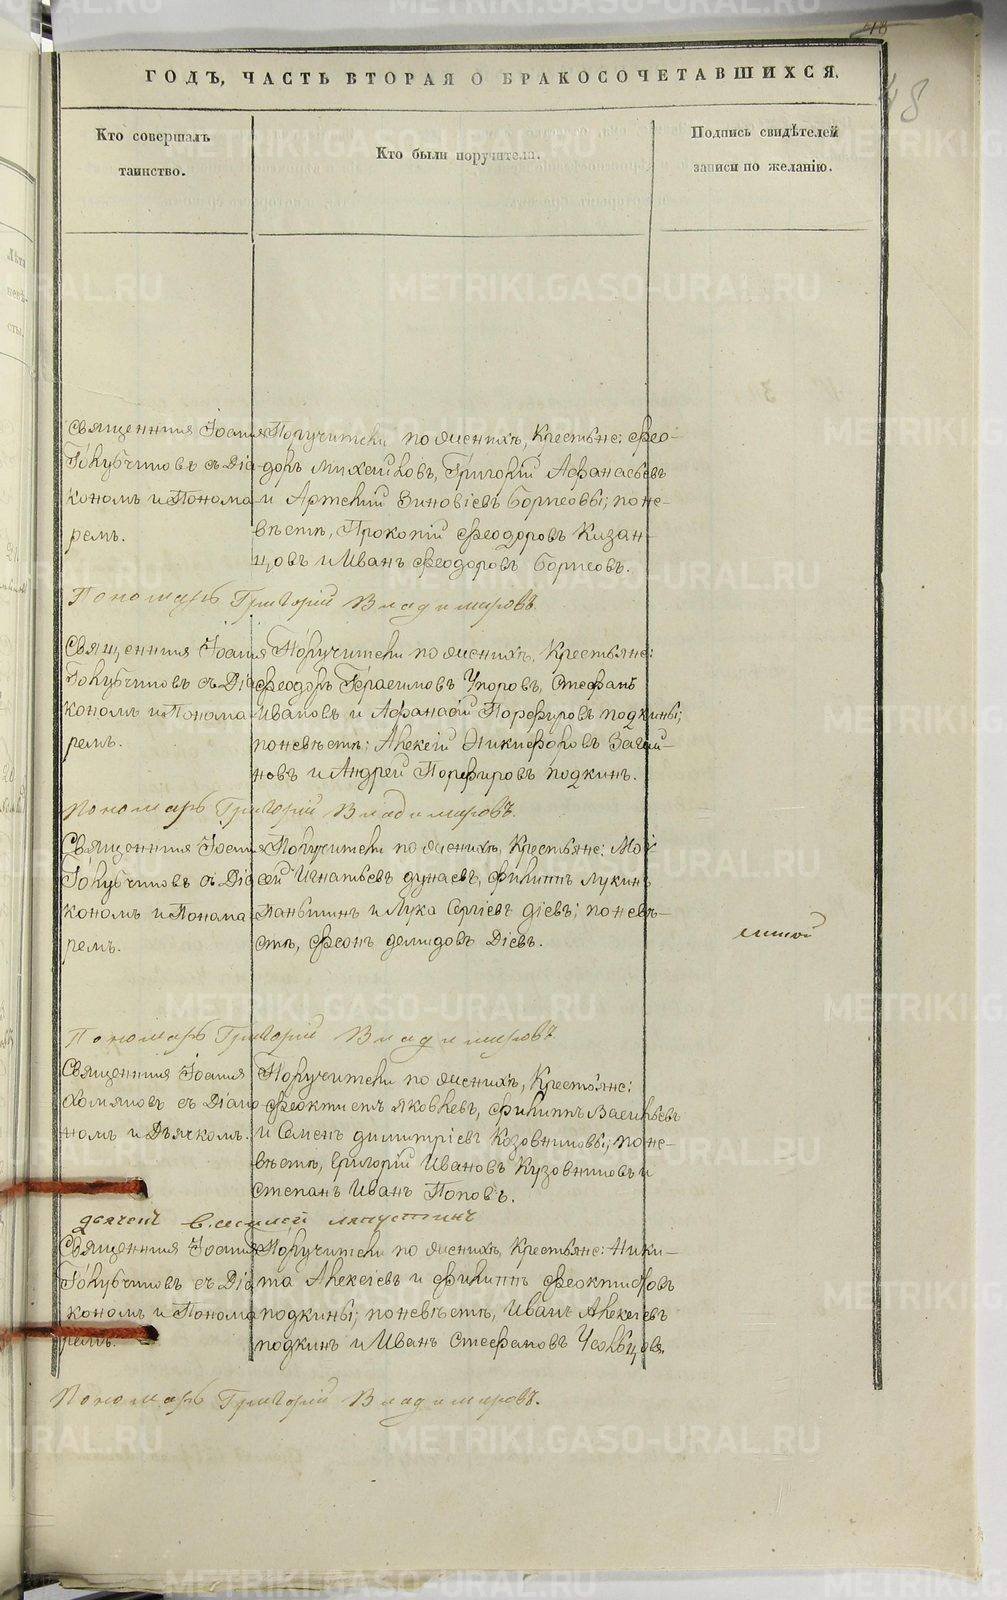 48
48
ГОДЪ, ЧАСТЬ ВТОРАЯ О БРАКОСОЧЕТАВШИХСЯ.
Кто совершалъ
таинство.
Кто были поручители.
Подпись свидѣтелей
записи по желанію.
Священникъ Іоаннъ
Голубчиковъ съ Діа-
кономъ и Понома-
ремъ.
Поручители по женихѣ, Крестьяне: Фео-
доръ Михеиковъ, Григорій Афанасьевъ
и Артемій Зиновіевъ Борисовы; по не-
вѣстѣ, Прокопій Феодоровъ Казан-
цовъ и Иванъ Феодоровъ Борисовъ.
Пономарь Григорій Владимировъ
Священникъ Іоаннъ
Голубчиковъ съ Діа
кономъ и Понома-
ремъ.
Поручители по женихѣ, Крестьяне:
Феодоръ Герасимовъ Упоровъ, Стефанъ
Ивановъ и Афанасій Порфировъ Подкины;
по невѣстѣ: Алексій Никифоровъ
новъ и Андрей Порфировъ Подкинъ.
Пономарь Григорій Владимировъ.
Священникъ Іоаннъ
Голубчиковъ съ Діа
кономъ и Понома-
ремъ.
Поручители по женихѣ, Крестьяне: Мои
сей Игнатьевъ Дунаевъ, Филиппъ Лукинъ
Паньшинъ и Лука Сергіевъ Діевъ; по невѣ-
стѣ, Феонъ Демидовъ Діевъ.
Пономарь Григорій Владимировъ
Священникъ Іоаннъ
Хомяковъ съ Діако
номъ и Дьячкомъ.
Поручители по женихѣ, Крестьяне:
Феоктистъ Яковлевъ, Филиппъ Васильевъ
и Семенъ Димитріевъ Козовниковы; по не-
вѣстѣ, Григорій Ивановъ Кузовниковъ и
Степанъ Иванъ Поповъ.
Дьячекъ Василей Лапустинъ
Священникъ Іоаннъ
Голубчиковъ съ Діа
кономъ и Понома
ремъ.
Поручители по женихѣ, Крестьяне: Ники-
та Алексіевъ и Филиппъ Феоктисовъ
Подкины; по невѣстѣ, Иванъ Алексіевъ
Подкинъ и Иванъ Стефановъ Усольцовъ.
Пономарь Григорій Владимировъ.